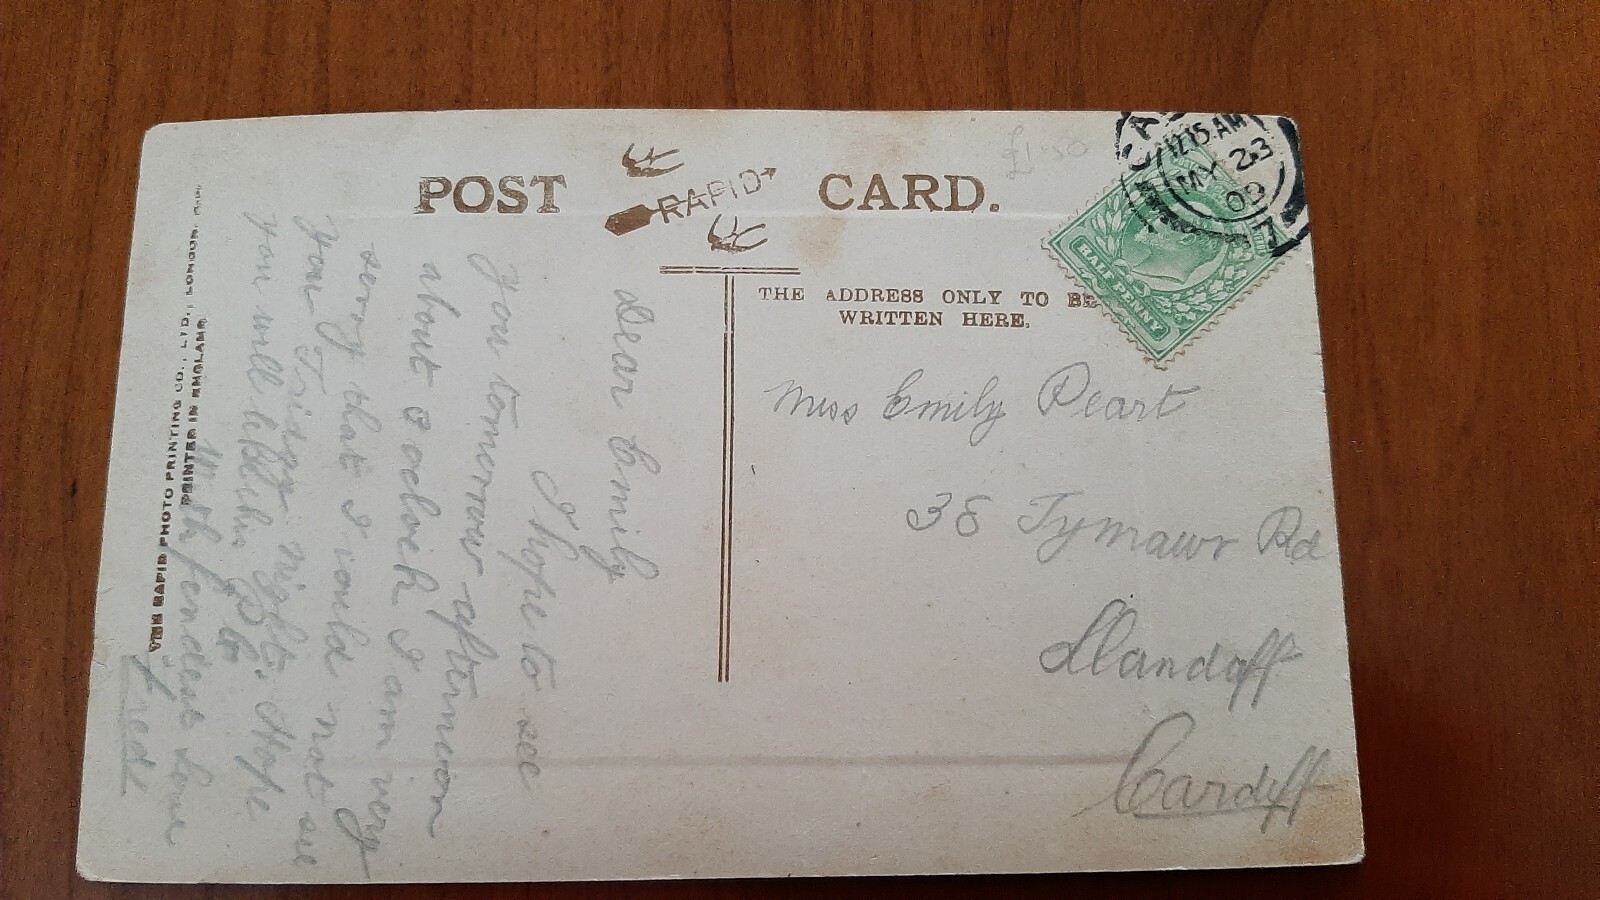 POST CARD.
RAPID
£1.50
12.15 AM
MY 23
7
HALF PENNY
THE ADDRESS ONLY TO BE
WRITTEN HERE.
Miss Emily Peart
38 Tymawr Rd
Llandaff
Cardiff
Dear Emily
I hope to see
you tomorrow afternoon
about 3 oclock I am very
sorry that I could not see
you Friday night. Hope
you will like this P.C.
With fondest Love
Fred
THE RAPID PHOTO PRINTING CO., LTD., LONDON. E.C.
PRINTED IN ENGLAND.